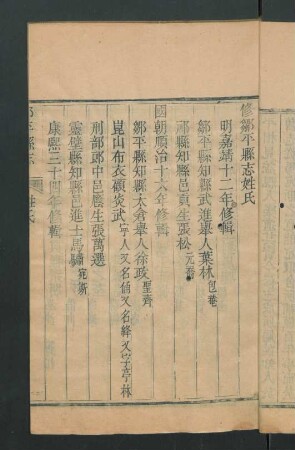 修鄒平縣志姓氏
明嘉靖十二年修輯
鄒平縣知縣武進舉人葉林包菴
祁縣知縣邑貢生張松一元喬
國朝順治十六年修輯
鄒平縣知縣太倉舉人徐政聖齊
崑山布衣顧炎武寧人又名絳又字亭林
刑部郎中邑廕生張萬選
靈壁縣知縣邑進士馬驌宛斯
康熙三十四年修輯
鄒平縣志
姓氏